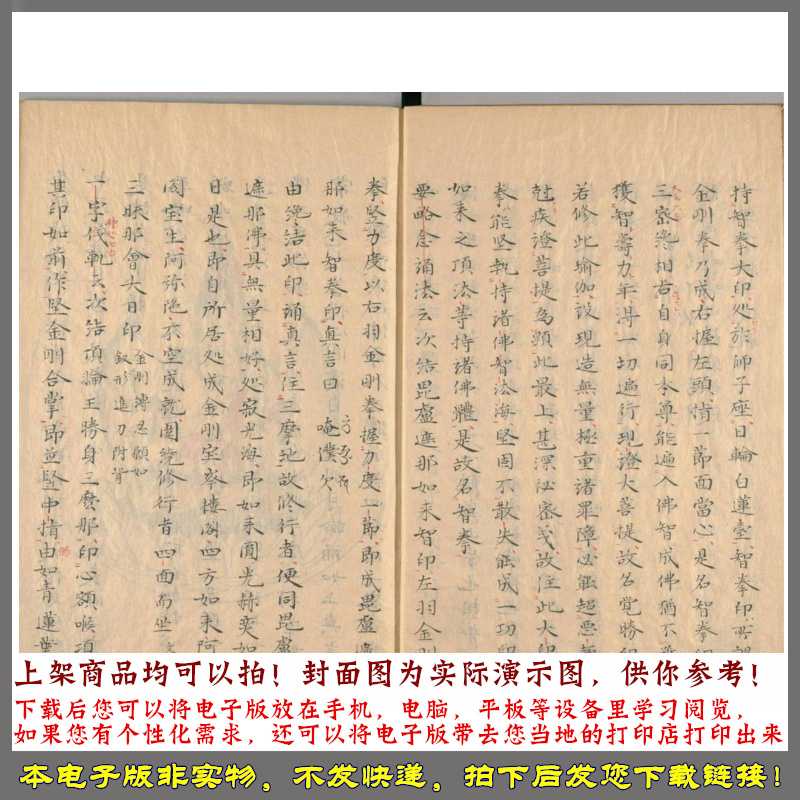 持智拳大印处於師子座日輪白蓮臺智拳印所謂
金剛拳乃成右握左頭指一節面當心是名智拳印
三密纔相右自身同本尊能遍入佛智成佛猶不難
獲智壽力年得一切遍行現證大菩提故名覺勝印
若修此瑜伽設現造無量極重諸罪障必能超惡
尅疾證菩提為顕此最上甚深秘密我故住此大印
拳能坚執持諸佛智法海堅固不散失能成一切印
如来之頂法等持諸佛體是故名智拳
要略念誦法云次結毘盧遮那如来智印左羽金剛
拳竖力度以右羽金剛拳握力度一節即成毘盧遮
那如来智拳印真言曰 唵僕欠
由纔結此印誦真言住三摩地故修行者便同毘盧
遮那佛具無量相好处寂光海即如来圓光赫奕如
日是也即自所居处成金剛宝峯楼閣四方如来阿
閦宝生阿弥陁不空成就圍繞修行者四面而坐
三昧耶會大日印 金剛縛忍願如
釼形進力附背
一字儀軌云次结頂輪王勝身三麼耶印心額喉頂
其印如前作坚金剛合掌即並竪中指由如青蓮葉
上架商品均可以拍！封面图为实际演示图，供你参考！
下载后您可以将电子版放在手机，电脑，平板等设备里学习阅览，
如果您有个性化需求，还可以将电子版带去您当地的打印店打印出来
本电子版非实物，不发快递，拍下后发您下载链接！